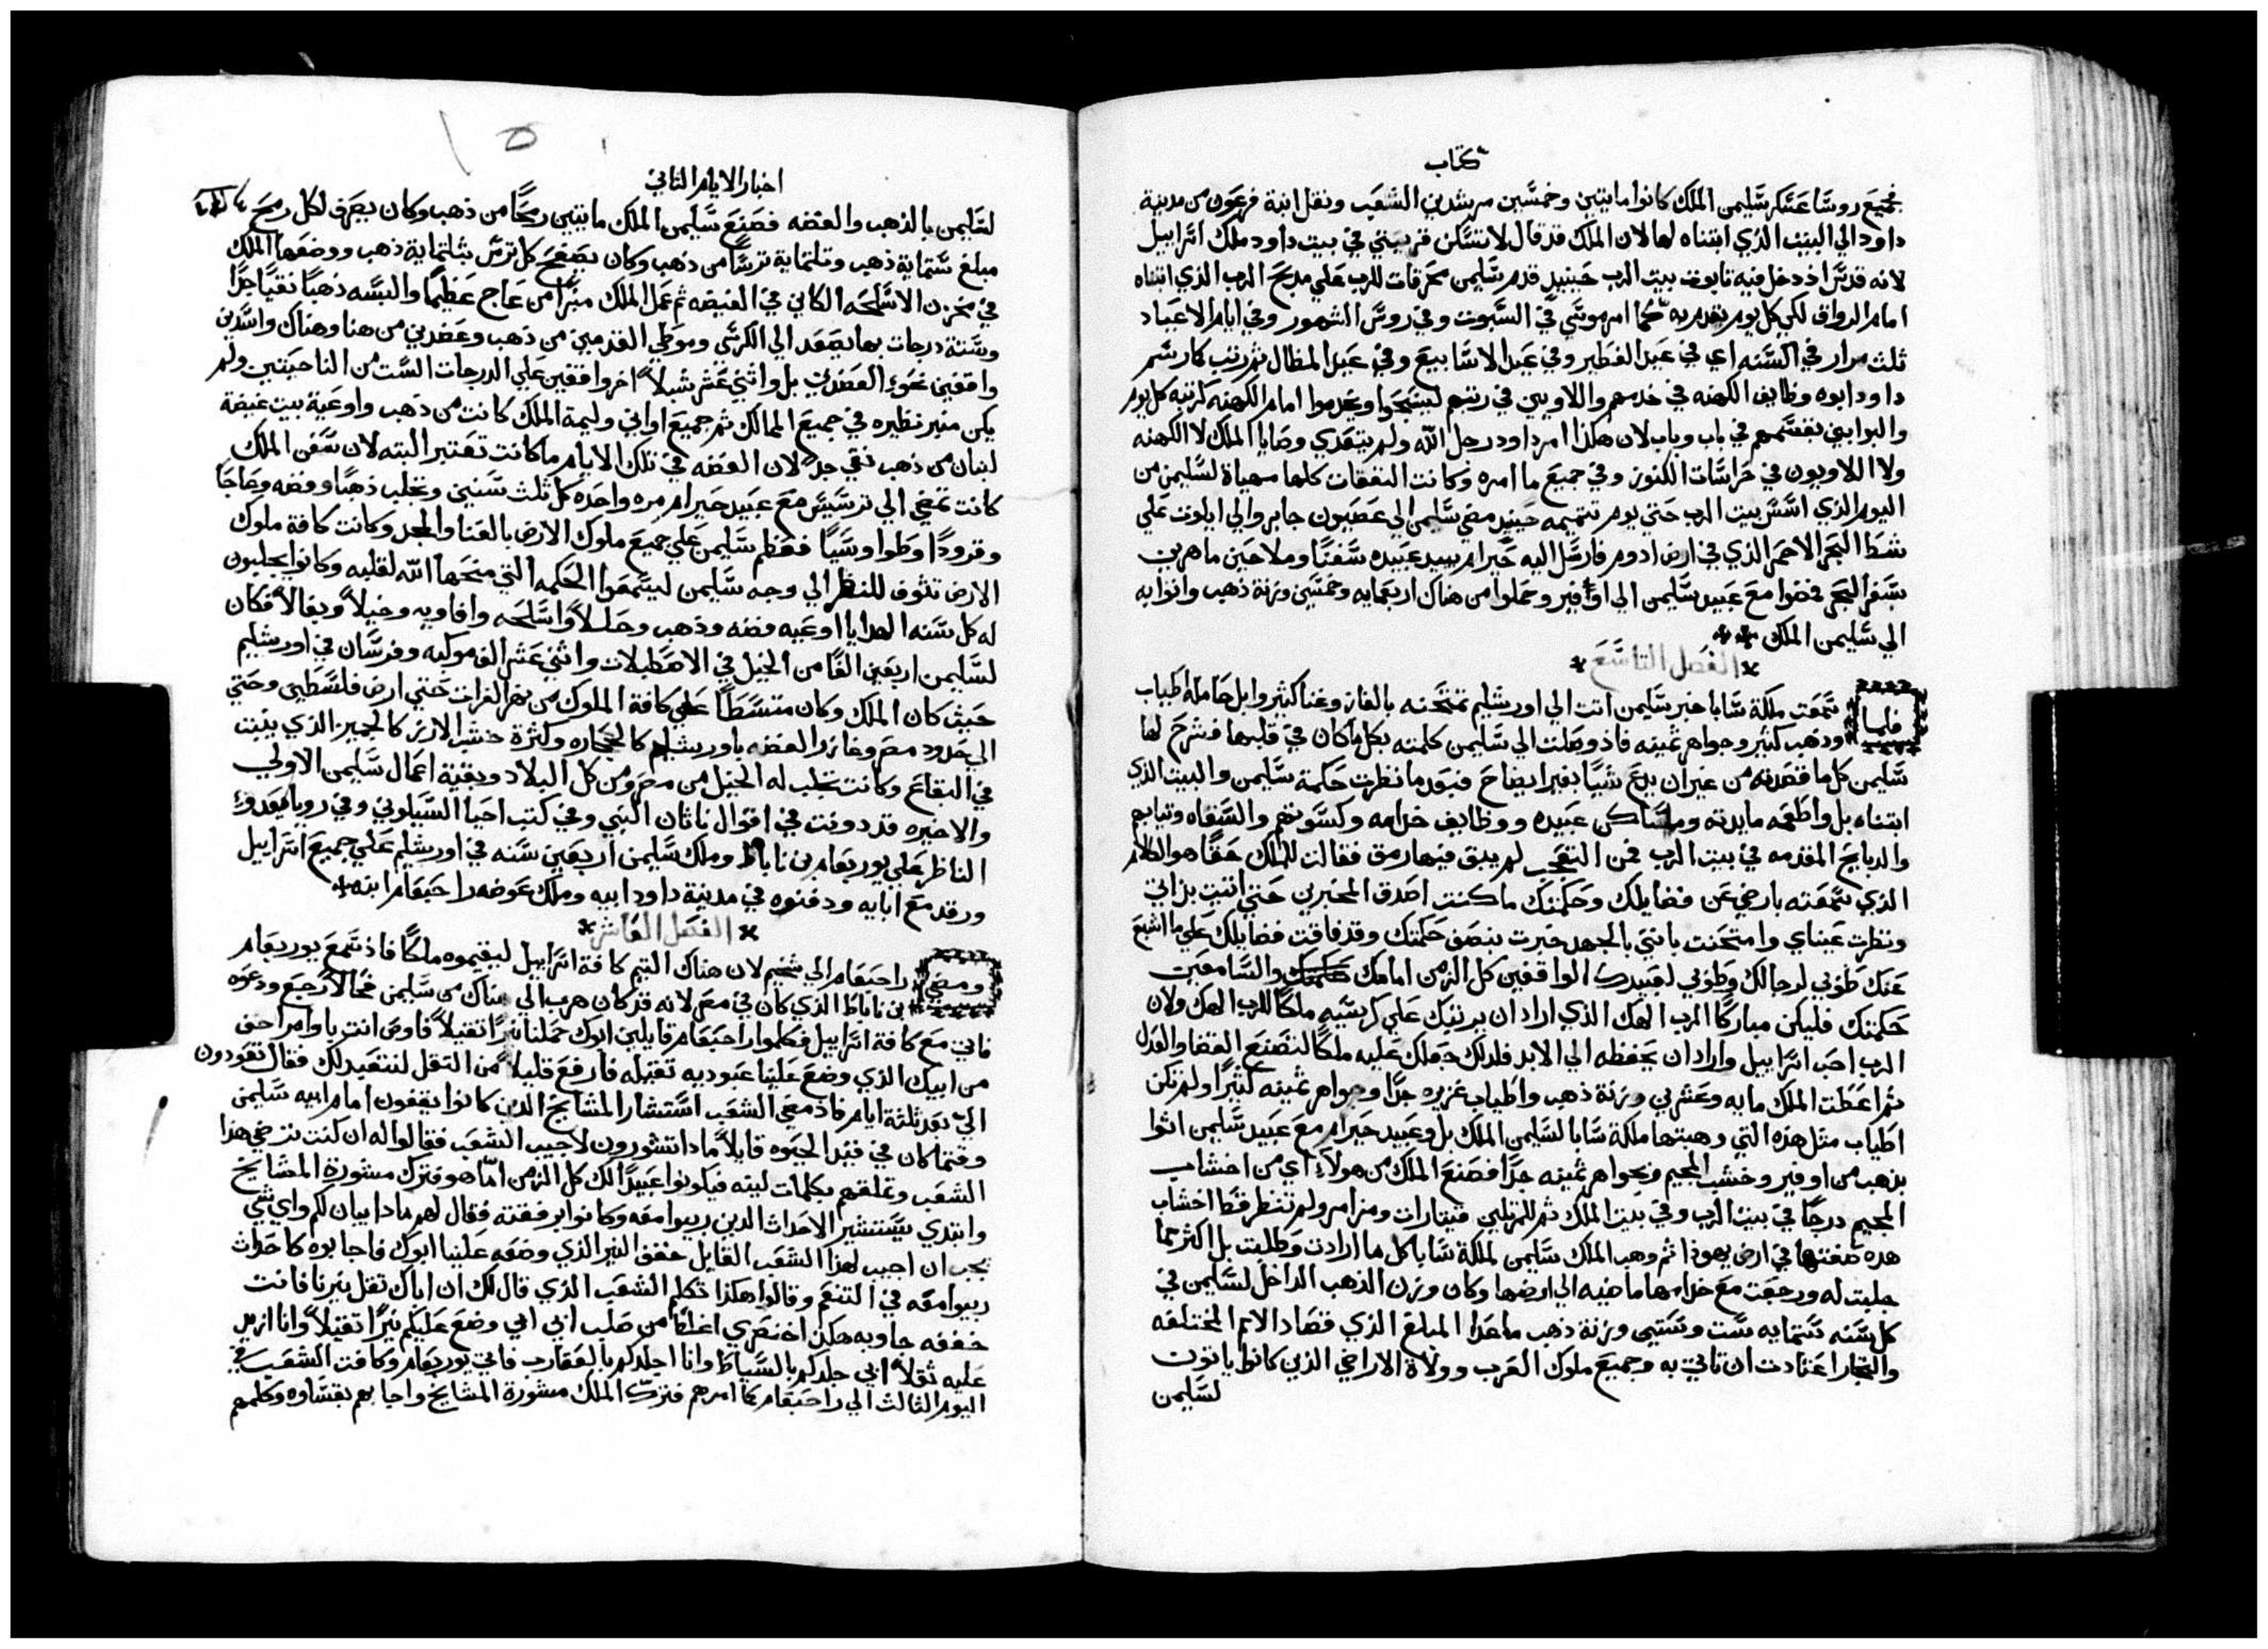 كتاب
فجميع روسا عسكر سليمن الملك كانوا مايتين وخمسين مرشدين الشعب ونقل ابنة فرعون من مدينة
داود الي البيت الذي ابتناه لها لان الملك قد قال لا تسكن قرينتي في بيت داود ملك اسراييل
لانه قدس اذ دخل فيه تابوت بيت الرب حينيد قدم سليمن محرقات للرب علي مدبح الرب الذي ابتناه
امام الرواق لكي كل يوم يقدم به كما امر موسي في السبوت وفي روس الشهور وفي ايام الاعياد
ثلث مرار في السنه اي في عيد الفطير وفي عيد الاسابيع وفي عيد المظال ثم رتب كما رسم
داود ابوه وظايف الكهنه في خدمهم واللاويين في رتبهم ليسبحوا ويخدموا امام الكهنه كرتبة كل يوم
والبوابين بقسمهم في باب وباب لان هكذا امر داود رجل الله ولم يتعدي وصايا الملك لا الكهنه
ولا اللاويون في حراسات الكنوز وفي جميع ما امره وكانت النفقات كلها مهياة لسليمن من
اليوم الذي اسس بيت الرب حتي يوم تتميمه حينيد مضي سليمن الي عصيون جابر والي ايلوت علي
شط البحر الاحمر الذي في ارض ادوم فارسل اليه حيرام بيد عبيده سفنا وملاحين ماهرين
بسفر البحر فمضوا مع عبيد سليمن الي اوفير وحملوا من هناك اربعمايه وخمسين وزنة ذهب واتوا به
الي سليمن الملك
الفصل التاسع
فلما سمعت ملكة سابا خبر سليمن اتت الي اورشليم تمتحنه بالغاز وغنا كثير وابل حاملة اطياب
وذهب كثير وجواهر ثمينه فاذ وصلت الي سليمن كلمته بكل ما كان في قلبها فشرح لها
سليمن كل ما قصدته من غير ان يدع شيا بغير ايضاح فبعد ما نظرت حكمة سليمن والبيت الذي
ابتناه بل واطعمه مايدته ومساكن عبيده ووظايف خدامه وكسوتهم والسقاه وتيابهم
والدبايح المقدمه في بيت الرب فمن التعجب لم يبق فيها رمق فقالت للملك حقا هو الكلام
الذي سمعته بارضي عن فضايلك وحكمتك ما كنت اصدق المخبرين حتي اتيت بذاتي
ونظرت عيناي وامتحنت باني بالجهد خبرت بنصف حكمتك وقد فاقت فضايلك علي ما اشيع
عنك طوبي لرجالك وطوبي لعبيدك الواقفين كل الزمن امامك والسامعين
حكمتك فليكن مباركا الرب الهك الذي اراد ان يرتبك علي كرسيه ملكا للرب الهك ولان
الرب احب اسراييل واراد ان يحفظه الي الابد فلدلك جعلك عليه ملكا لتصنع القضا والعدل
ثم اعطت الملك مايه وعشرين وزنة ذهب واطياب غزيره جدا وجواهر ثمينه كثيرا ولم تكن
اطياب مثل هذه التي وهبتها ملكة سابا لسليمن الملك بل وعبيد حيرام مع عبيد سليمن اتوا
بذهب من اوفير وخشب المجيم وبجواهر ثمينه جدا فصنع الملك من هولاء اي من اخشاب
المجيم درجا في بيت الرب وفي بيت الملك ثم للمرتلين قيتارات ومزامر ولم تنظر قط اخشاب
هده صفتها في ارض يهوذا ثم وهب الملك سليمن لملكة سابا كل ما ارادت وطلبت بل اكثر مما
جلبت له ورجعت مع خدامها ماضيه الي ارضها وكان وزن الذهب الداخل لسليمن في
كل سنه ستمايه ست وستين وزنة ذهب ماعدا المبلغ الذي قصاد الامم المختلفه
والتجار اعتادت ان تاتي به وجميع ملوك العرب وولاة الاراضي الذين كانوا ياتون
لسليمن
اخبار الايام الثاني
لسليمن بالذهب والفضه فصنع سليمن الملك مايتين رمحا من ذهب وكان يصرف لكل رمح
مبلغ ستماية ذهب وتلتماية ترسا من ذهب وكان يصفح كل ترس بتلتماية ذهب ووضعها الملك
في مخزن الاسلحه الكاين في الغيضه ثم عمل الملك منبرا من عاج عظيما والبسه ذهبا نقيا جدا
وستة درجات بها يصعد الي الكرسي وموطي القدمين من ذهب وعضدين من هنا وهناك واسدين
واقفين نحو العضدين بل واثني عشر شبلا اخر واقفين علي الدرجات الست من الناحيتين ولم
يكن منبر نظيره في جميع الممالك ثم جميع اواني وليمة الملك كانت من ذهب واوعية بيت غيضة
لبنان من ذهب نقي جدا لان الفضه في تلك الايام ما كانت تعتبر البته لان سفن الملك
كانت تمضي الي ترسيس مع عبيد حيرام مره واحده كل ثلث سنين وتجلب ذهبا وفضه وعاجا
وقرودا وطواوسيا فعظم سليمن علي جميع ملوك الارض بالغنا والمجد وكانت كافة ملوك
الارض تثوف للنظر الي وجه سليمن ليسمعوا الحكمه التي منحها الله لقلبه وكانوا يجلبون
له كل سنه الهدايا اوعيه فضه وذهب وحللا واسلحه وافاويه وخيلا وبغالا فكان
لسليمن اربعين الفا من الخيل في الاصطبلات واثني عشر الف موكبه وفرسان في اورشليم
حيث كان الملك وكان متسلطا علي كافة الملوك من نهر الفرات حتي ارض فلسطين وحتي
الي حدود مصر وغازر الفضه باورشليم كالحجاره وكثرة خشب الارز كالجميز الذي ينبت
في البقاع وكانت تجلب له الخيل من مصر ومن كل البلاد وبقية اعمال سليمن الاولي
والاخيره قد دونت في اقوال ناثان النبي وفي كتب احيا السيلوني وفي رويا يعدو
الناظر علي يوربعام بن ناباط وملك سليمن اربعين سنه في اورشليم علي جميع اسراييل
ورقد مع ابايه ودفنوه في مدينة داود ابيه وملك عوضه راحبعام ابنه
الفصل العاشر
ومضي راحبعام الي شخيم لان هناك التيم كافة اسراييل ليقيموه ملكا فاذ سمع يوربعام
بن ناباط الذي كان في مصر لانه قد كان هرب الي هناك من سليمن فحالا رجع ودعوه
فاتي مع كافة اسراييل فكلموا راحبعام قايلين ابوك حملنا نيرا تقيلا فاومر انت باوامر اخف
من ابيك الذي وضع علينا عبوديه تقيله فارفع قليلا من التقل لنتعبد لك فقال تعودون
الي بعد ثلثة ايام فاذ مضي الشعب استشار المشايخ الدين كانوا يقفون امام ابيه سليمن
وقتما كان في قيد الحيوه قايلا مادا تشورون لاجيب الشعب فقالوا له ان كنت ترضي هذا
الشعب وتملقهم بكلمات لينه فيكونوا عبيدا لك كل الزمن اما هو فترك مشورة المشايخ
وابتدي يستشير الاحداث الدين ربيوا معه وكانوا برفقته فقال لهم مادا يبان لكم واي شي
يجب ان اجيب لهذا الشعب القايل خفف النير الذي وضعه علينا ابوك فاجابوه كاحداث
ربيوا معه في التنعم وقالوا هكذا تكلم الشعب الذي قال لك ان اباك تقل نيرنا فانت
خففه جاوبه هكذا خنصري اغلظ من صلب ابي ابي وضع عليكم نيرا تقيلا وانا ازيد
عليه ثقلا ابي جلدكم بالسياط وانا اجلدكم بالعقارب فاتي يوربعام وكافت الشعب في
اليوم الثالث الي راحبعام كما امرهم فترك الملك مشورة المشايخ واجابهم بقساوه وكلمهم